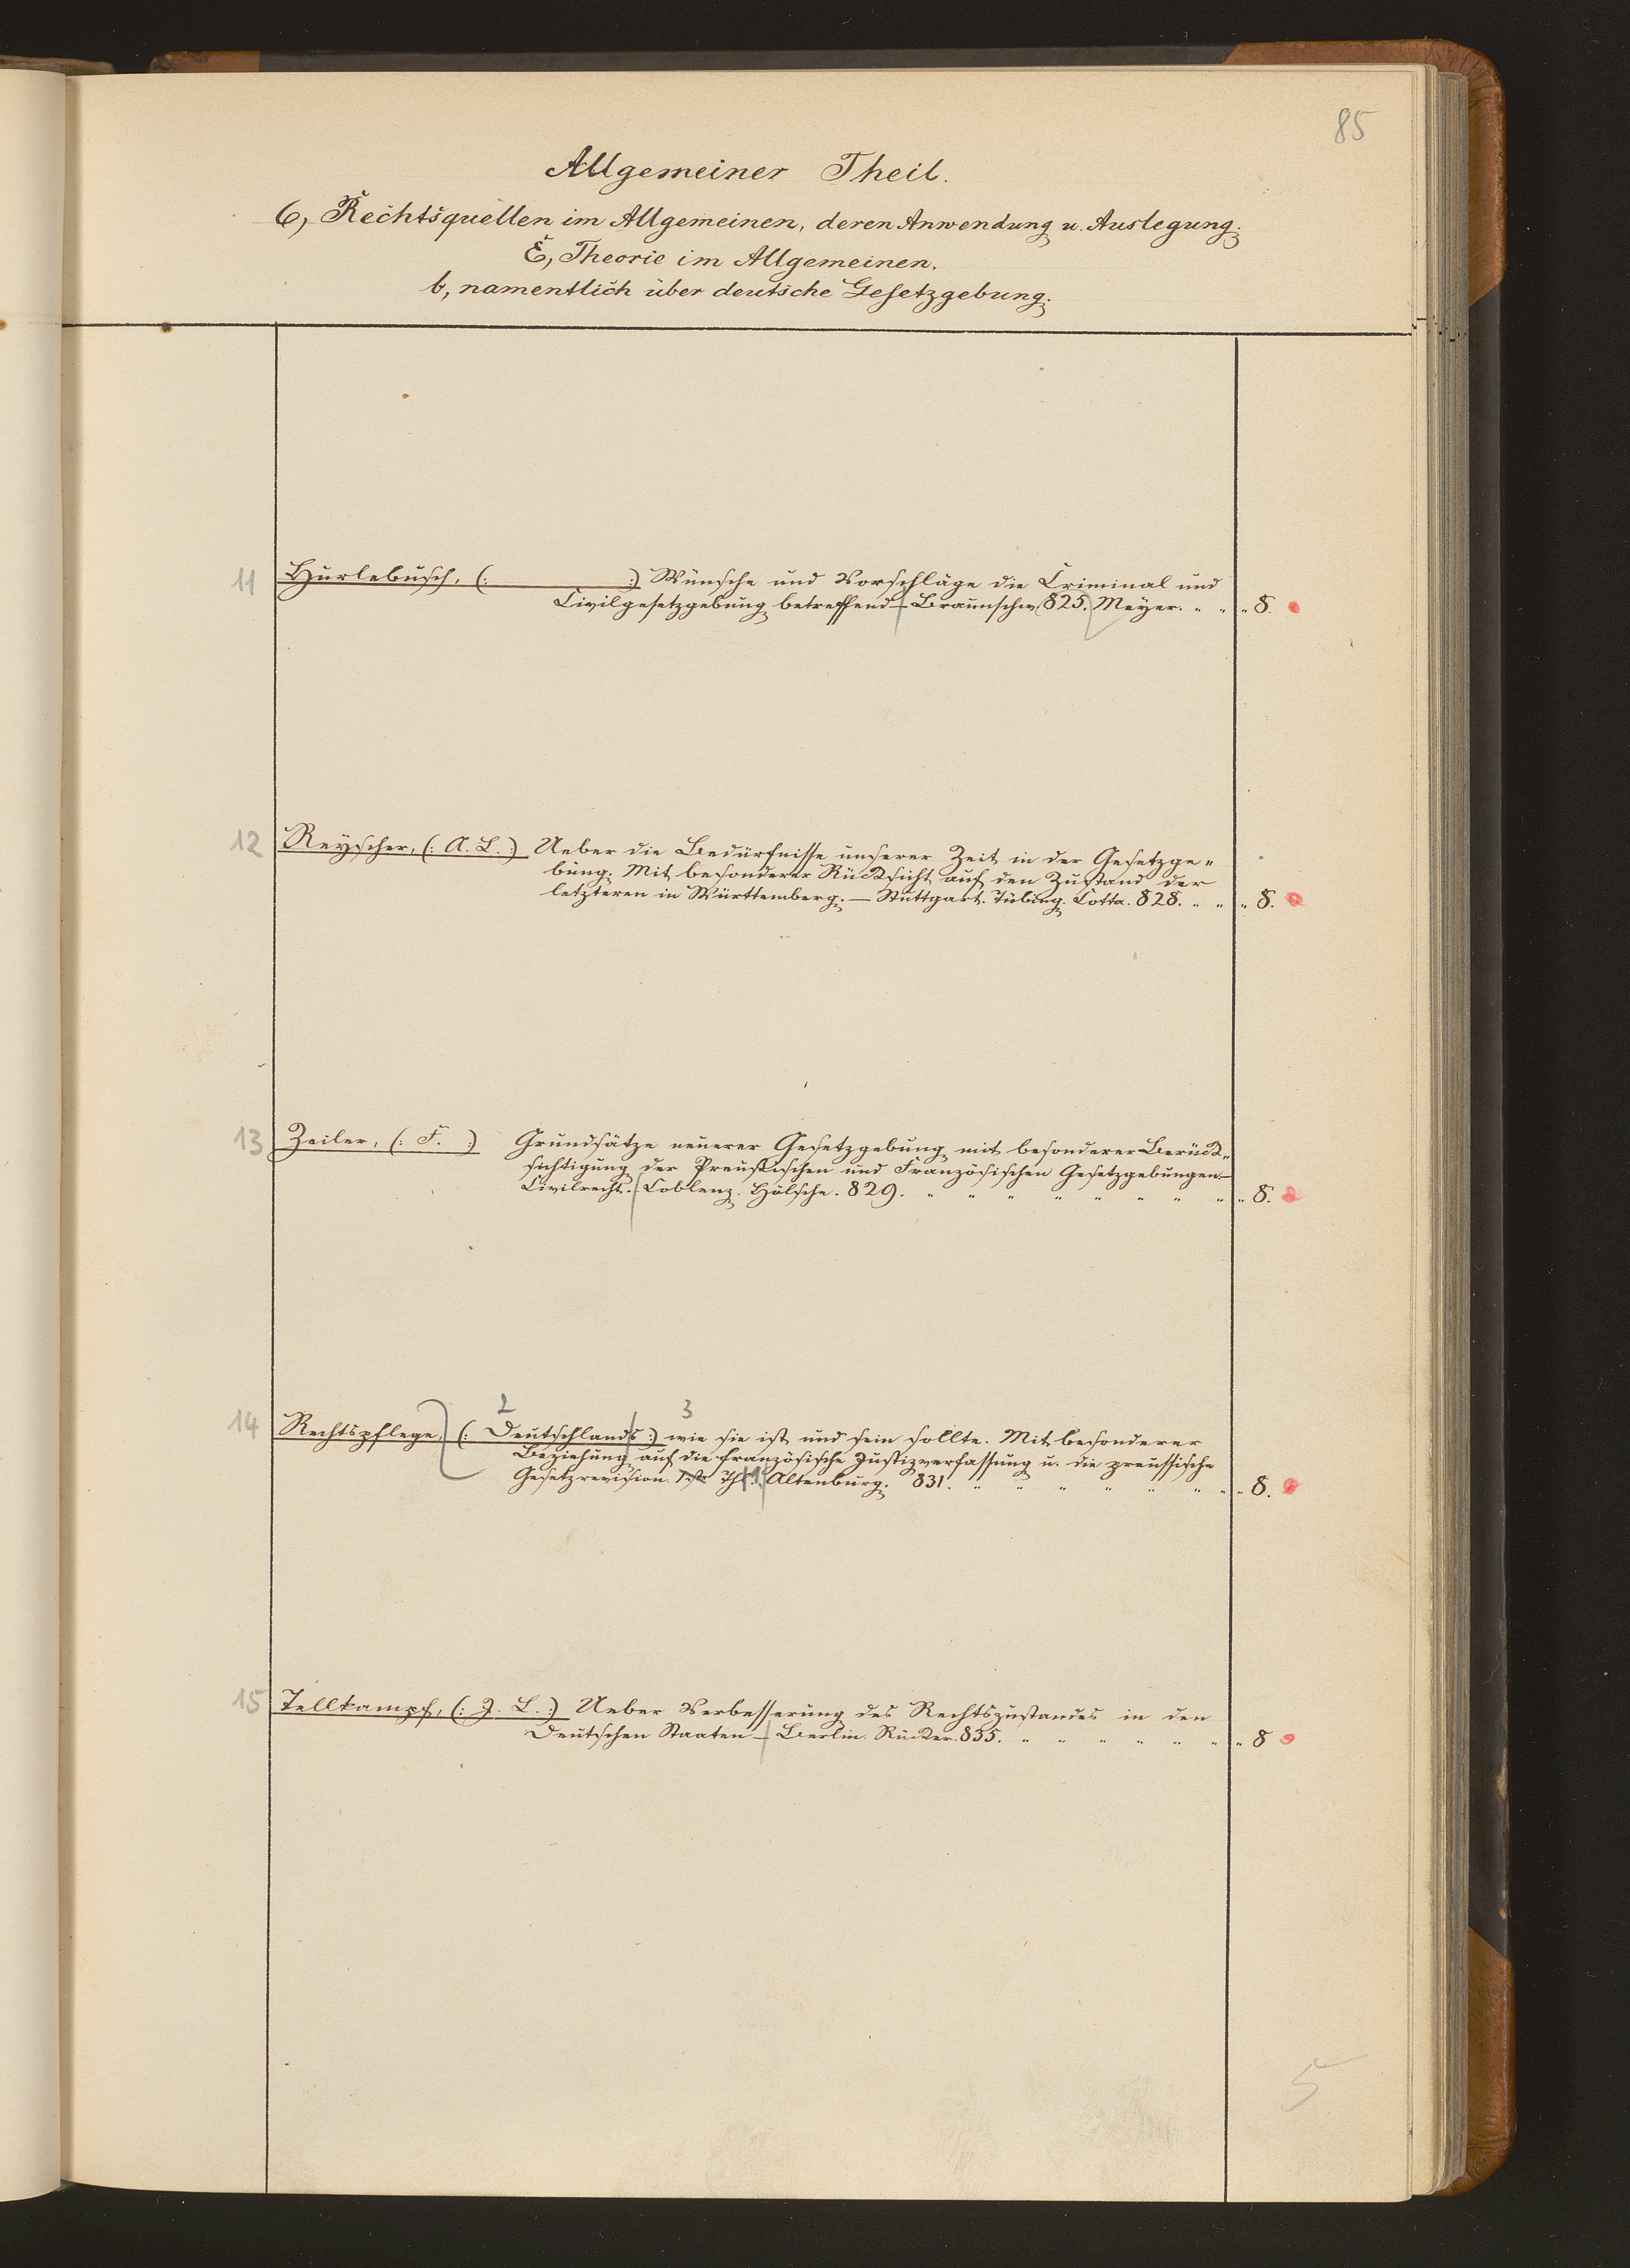 85
Allgemeiner Theil.
6, Rechtsquellen im Allgemeinen, deren Anwendung u. Auslegung.
E, Theorie im Allgemeinen.
b, namentlich über deutsche Gesetzgebung.
11 Hurlebusch, (: :) Wünsche und Vorschläge die Criminal und
Civilgesetzgebung betreffend – Braunschw. 825. Meyer. " " " 8.
12 Reyscher, (: A. L. :) Ueber die Bedürfnisse unserer Zeit in der Gesetzge-
bung. Mit besonderer Rücksicht auf den Zustand der
letzteren in Württemberg. – Stuttgart. Tübing. Cotta. 828. " " " 8.
13 Zeiler, (: F. :) Grundsätze neuerer Gesetzgebung mit besonderer Berück-
sichtigung der Preußischen und Französischen Gesetzgebungen –
Civilrecht. Coblenz. Hölscher. 829. " " " " " " " " " 8.
2 3
14 Rechtspflege, (: Deutschlands :) wie sie ist und sein sollte. Mit besonderer
Beziehung auf die französische Justizverfassung u. die preussische
Gesetzrevision. 1ster Th. 1. Altenburg. 831. " " " " " " " " 8.
15 Tellkampf, (: J. L. :) Ueber Verbesserung des Rechtszustandes in den
Deutschen Staaten – Berlin. Rücker. 835. " " " " " " " 8
5